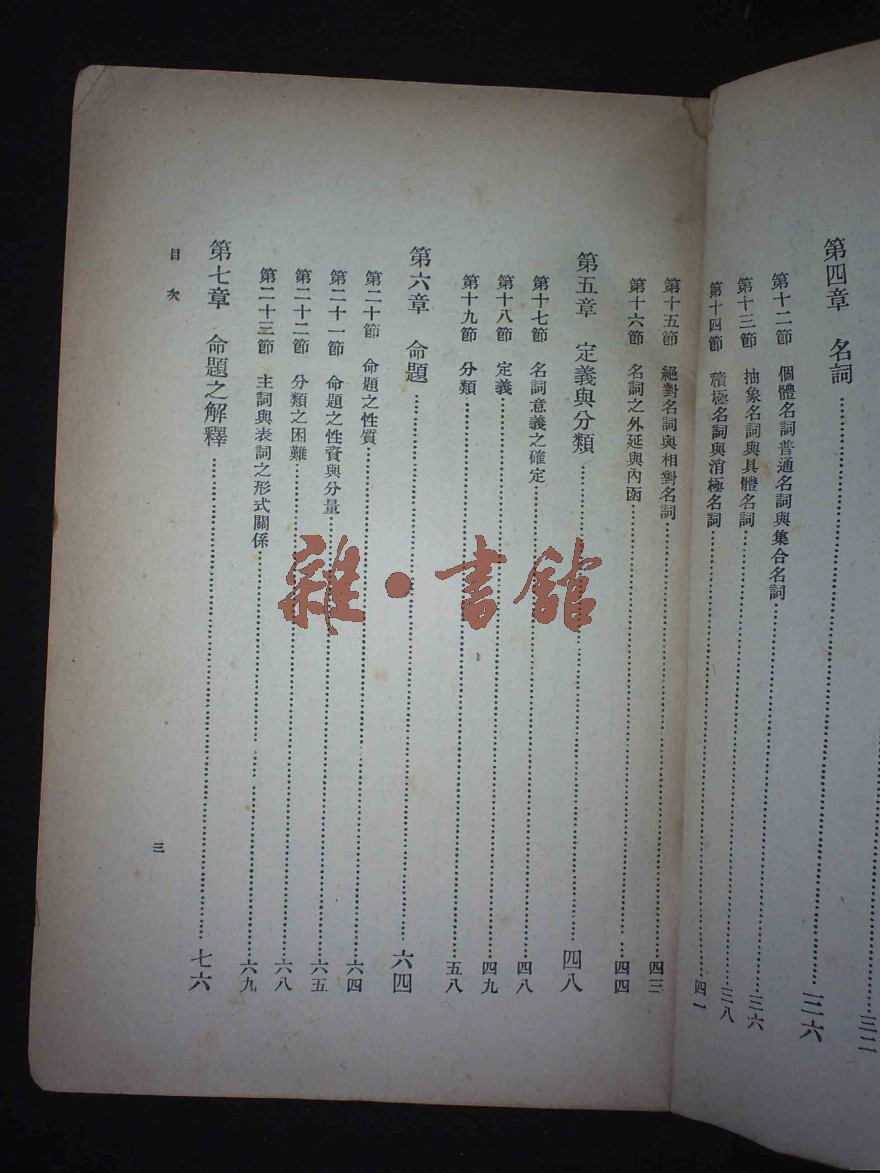 三二
第四章　名詞……三六
第十二節　個體名詞普通名詞與集合名詞……三六
第十三節　抽象名詞與具體名詞……三八
第十四節　積極名詞與消極名詞……四一
第十五節　絕對名詞與相對名詞……四三
第十六節　名詞之外延與內函……四四
第五章　定義與分類……四八
第十七節　名詞意義之確定……四八
第十八節　定義……四九
第十九節　分類……五八
第六章　命題……六四
第二十節　命題之性質……六四
第二十一節　命題之性質與分量……六五
第二十二節　分類之困難……六八
第二十三節　主詞與表詞之形式關係……六九
第七章　命題之解釋……七六
目次
三
雜·書館